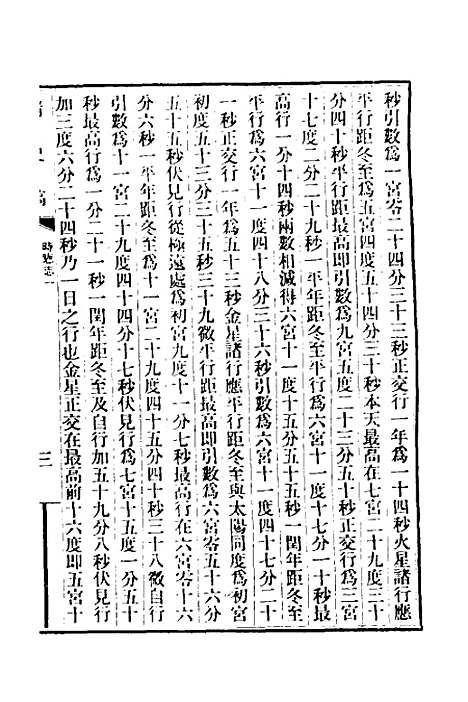 秒引數爲一宮零二十四分三十三秒正交行一年爲一十四秒火星諸行應
平行距冬至爲五宮四度五十四分三十秒本天最高在七宮二十九度三十
分四十秒平行距最高卽引數爲九宮五度二十三分五十秒正交行爲三宮
十七度二分二十九秒一平年距冬至平行爲六宮十一度十七分一十秒最
高行一分十四秒兩數相減得六宮十一度十五分五十五秒一閏年距冬至
平行爲六宮十一度四十八分三十六秒引數爲六宮十一度四十七分二十
一秒正交行一年爲五十三秒金星諸行應平行距冬至與太陽同度爲初宮
初度五十三分三十五秒三十九微平行距最高卽引數爲六宮零五十六分
五十五秒伏見行從極遠處爲初宮九度十一分七秒最高行在六宮零十六
分六秒一平年距冬至爲十一宮二十九度四十五分四十秒三十八微自行
引數爲十一宮二十九度四十四分十七秒伏見行爲七宮十五度一分五十
秒最高行爲一分二十一秒一閏年距冬至及自行加五十九分八秒伏見行
加三度六分二十四秒乃一日之行也金星正交在最高前十六度卽五宮十
清史稿
時憲志一
三